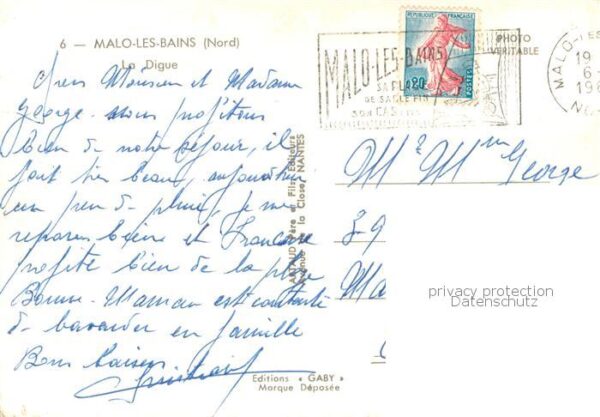 6 - MALO-LES-BAINS (Nord)
La Digue
Chers Monsieur et Madame
George - nous profitons
bien de notre séjour, il
fait très beau, aujourd'hui
un peu de pluie, je me
repose bien et
profite bien de la plage
Bonne-Maman est contente
de bavarder en famille
Bons baisers
ARTAUD Père et Fils, Éditeurs
Avenue de la Close, NANTES
Editions « GABY »
Marque Déposée
PHOTO
VÉRITABLE
REPUBLIQUE FRANÇAISE
0,20
POSTES
MALO-LES-BAINS
SA PLAGE
DE SABLE FIN
SON CASINO
MALO-LES-
19
6-
196
NO
Mr Mme George
39
Ma
privacy protection
Datenschutz